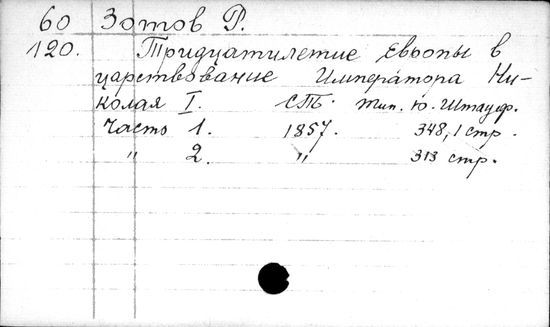 60 Зотов Р.
120. Тридцатилетие Европы в
царствование Императора Ни-
колая I. СТб. Тип. Ю. Штауф.
Часть 1. 1857. 348, 1 стр.
" 2. " 313 стр.